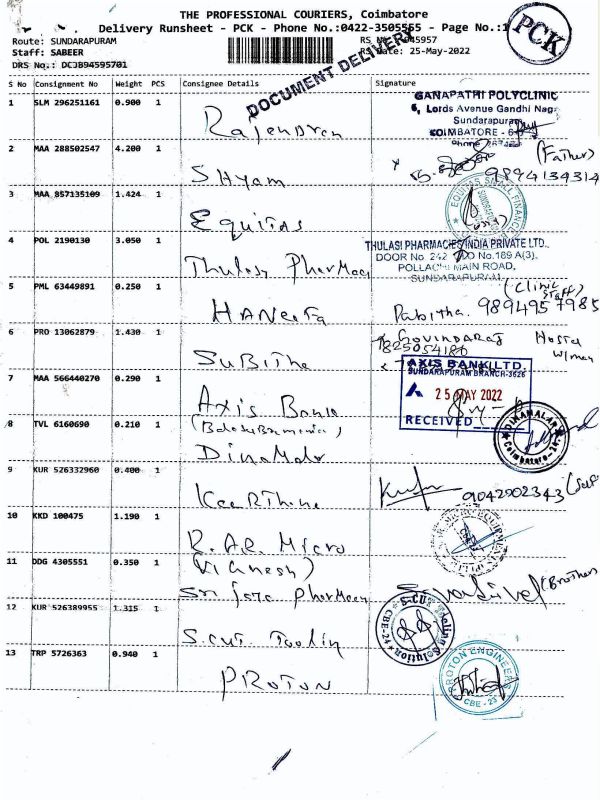 THE PROFESSIONAL COURIERS, Coimbatore
Delivery Runsheet - PCK - Phone No.:0422-3505565 - Page No.:1
PCK
Route: SUNDARAPURAM
Staff: SABEER
RS Date: 25-May-2022
DRS No.: DCJB94595701
DOCUMENT DELIVERY
S No Consignment No Weight PCS Consignee Details Signature
1 SLM 296251161 0.900 1 Rajendren
GANAPATHI POLYCLINIC
6, Lords Avenue Gandhi Nag
Sundarapuram
COIMBATORE - 6
2 MAA 288502547 4.200 1 SHyam
(Father)
9894134314
3 MAA 857135109 1.424 1 EQuitas
EQUITAS SMALL FINANCE
SUNDARAPURAM
4 POL 2190130 3.050 1 Thulasy PharMacy
THULASI PHARMACIES INDIA PRIVATE LTD.,
DOOR No. 242 No.189 A(3).
POLLACHI MAIN ROAD,
SUNDARAPURAM
5 PML 63449891 0.250 1 HANeefa
(Clinic Staff)
Pabitha. 9894957985
6 PRO 13062879 1.430 1 SuBitha
GOVINDARAJ
Hostel
7 MAA 566440270 0.290 1 Axis Bank
AXIS BANK LTD.
SUNDARAPURAM BRANCH-3626
25 MAY 2022
RECEIVED
8 TVL 6160690 0.210 1
DinaMalar
DINAMALAR
Coimbatore-24
9 KUR 526332960 0.400 1 KeeRthine
9042002343 (Self)
10 KKD 100475 1.190 1 R.AR. Micro
11 DDG 4305551 0.350 1 (Vignesh)
Sri Jaya PharMacy
(Brother)
12 KUR 526389955 1.315 1 S.cut Toolin
S-CUT Tooling Solution
CBE-24
13 TRP 5726363 0.940 1 PROTON
PROTON ENGINEERS
CBE - 23